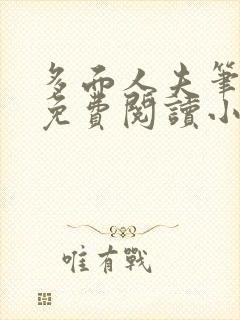 多而人夫筆
免費閱讀小
唯有戰